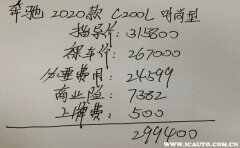 奔驰 2020款 C200L 时尚型
指导价: 315800
裸车价: 267000
必要费用: 24599
商业险: 7382
上牌费: 500
299400
WWW.XCAUTO.COM.CN